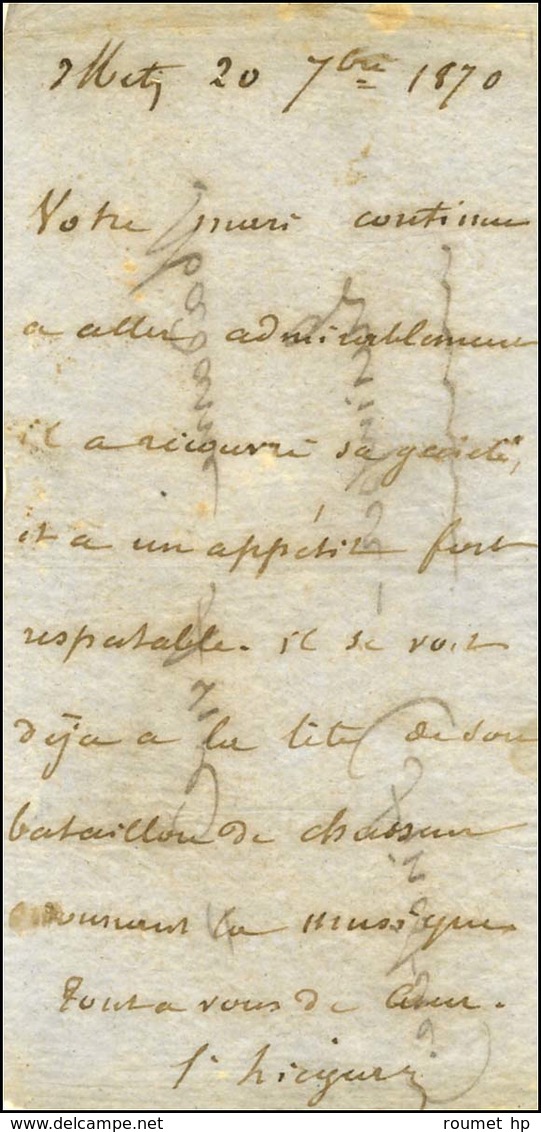 Metz 20 7bre 1870
Votre mari continue
a aller admirablement
il a recouvré sa gaieté,
et a un appétit fort
respectable. il se voit
déja a la tête de son
bataillon de chasseur
donnant la musique
tout a vous de Cœur.
roumet hp